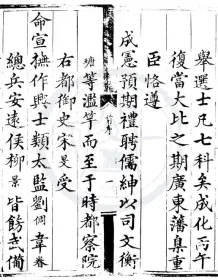 舉選士凡七科矣成化丙午
復當大比之期廣東藩臬重
臣恪遵
成憲預期禮聘儒紳以司文衡
瑭等濫竽而至于時都察院
右都御史宋旻受
命宣撫作興士類太監劉倜韋眷
總兵安遠侯柳景皆飭武備